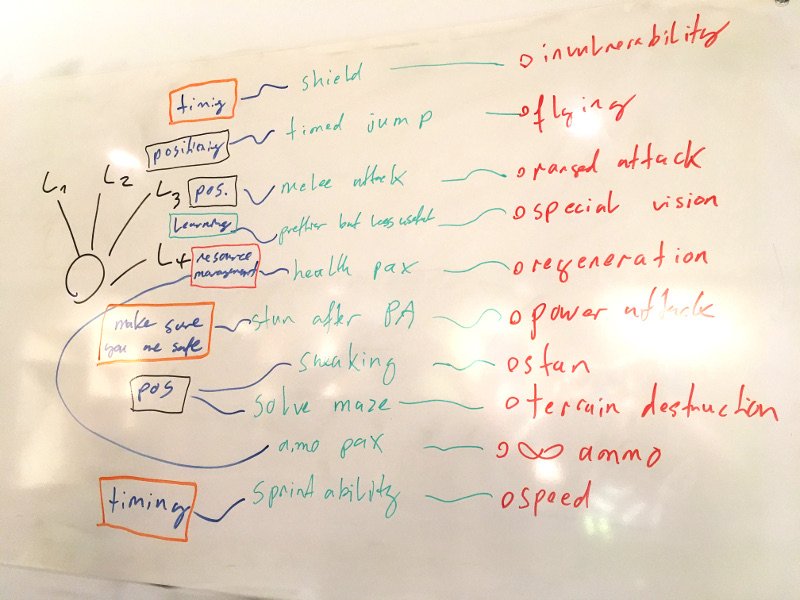 timig shield invulnerability
positionig timed jump flying
L1 L2 L3 pos. melee attack ranged attack
Learning prettier but less useful special vision
L4 resource management health pax regeneration
make sure you are safe stun after PA power attack
pos sneaking stan
solve maze terrain destruction
amo pax ∞ ammo
timing sprint ability speed